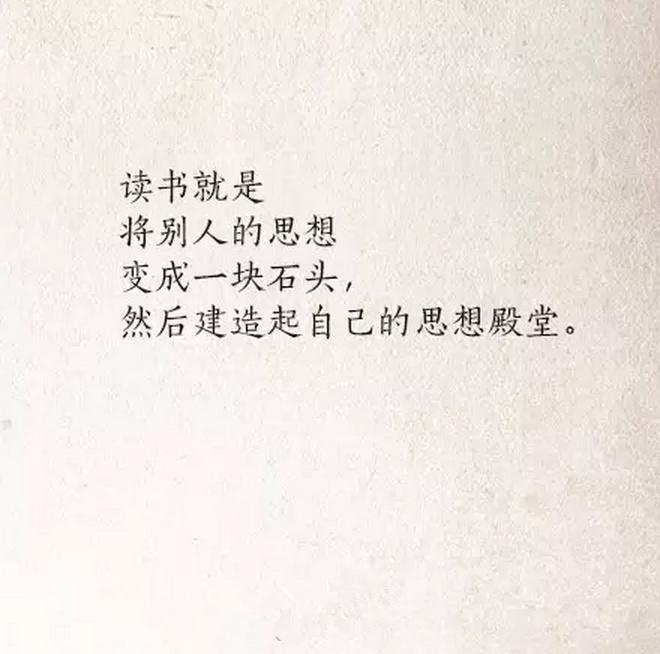 读书就是
将别人的思想
变成一块石头,
然后建造起自己的思想殿堂。